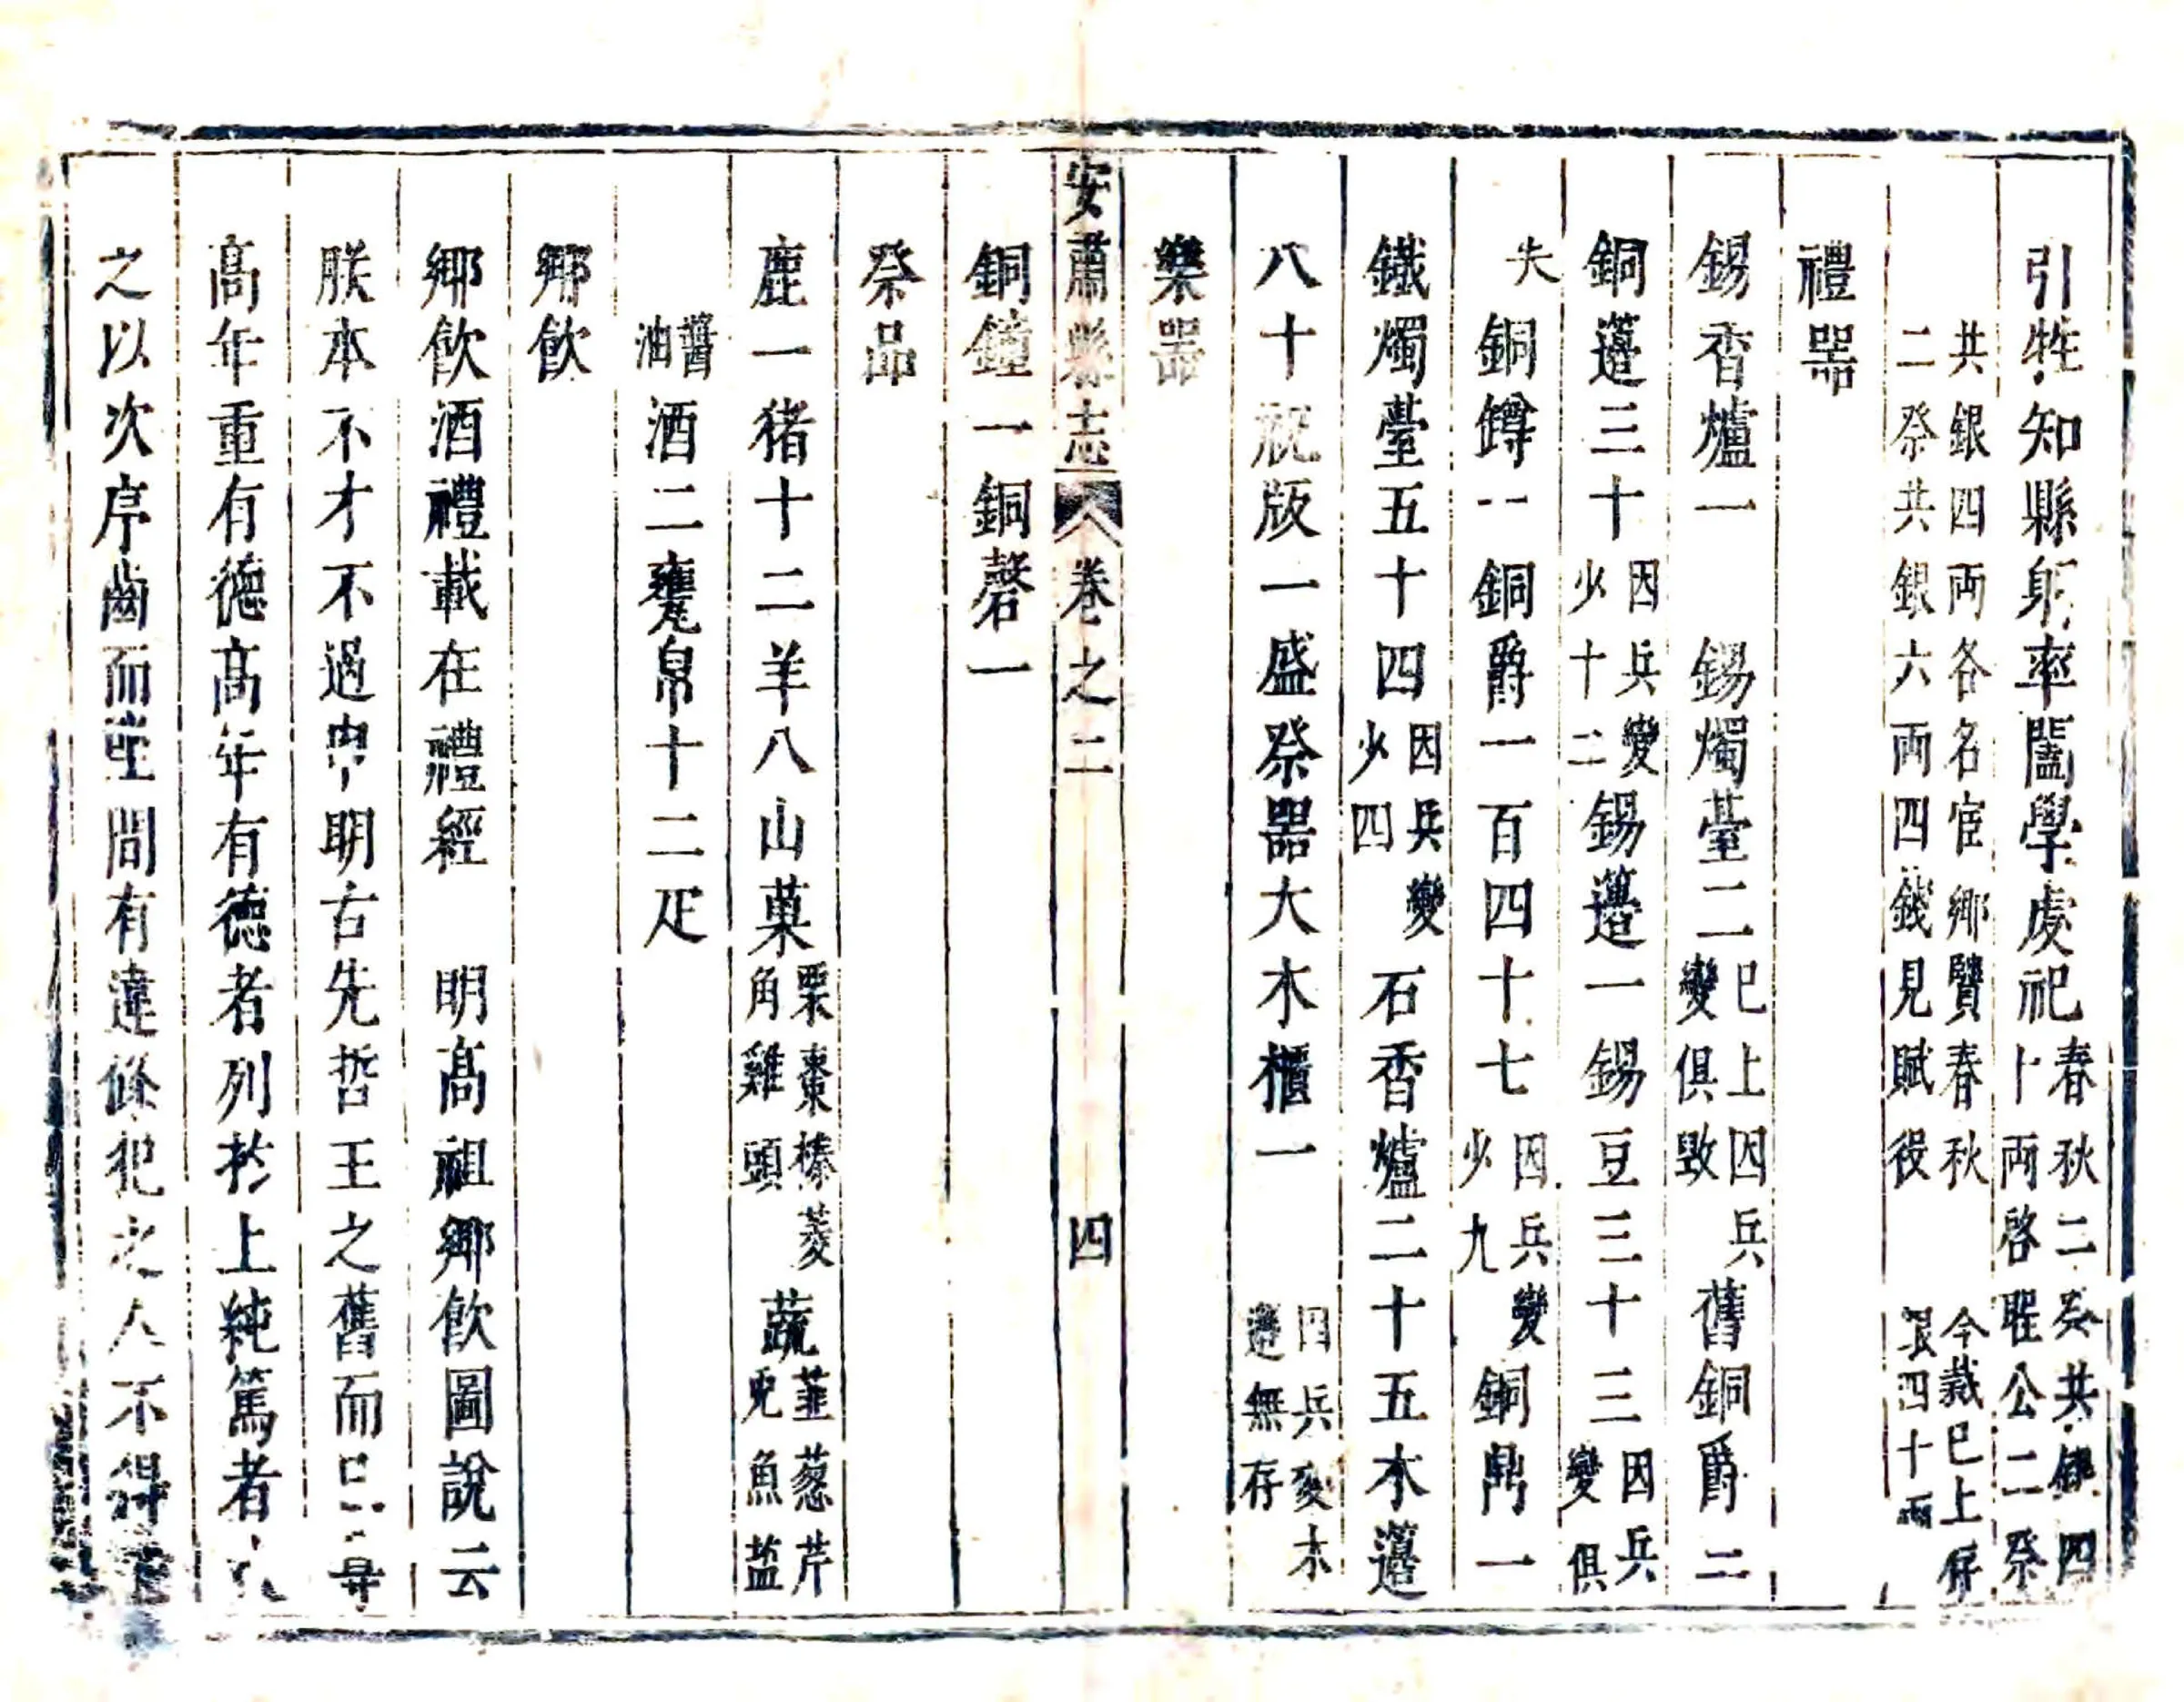 引牲知縣躬率闔學虔祀春秋二祭共銀四十兩啓聖公二祭
共銀四兩各名宦鄉賢春秋二祭共銀六兩四錢見賦役 今裁已上存銀四十兩
禮器
錫香爐一 錫燭臺二已上因兵變俱毀舊銅爵二
銅籩三十因兵變少十二錫籩一錫豆三十三因兵變俱
失銅罇一銅爵一百四十七因兵變少九銅鼎一
鐵燭臺五十四因兵變少四石香爐二十五木籩
八十祝版一盛祭器大木櫃一 因兵變木籩無存
樂器
安肅縣志 卷之二 四
銅鐘一銅磬一
祭品
鹿一猪十二羊八山菓栗棗榛菱角雞頭蔬韮葱芹兎魚盐
醬油酒二甕帛十二疋
鄉飲
鄉飲酒禮載在禮經 明高祖鄉飲圖說云
朕本不才不過申明古先哲王之舊而已
高年重有德高年有德者列於上純篤者
之以次序齒而坐間有違條犯之人不得